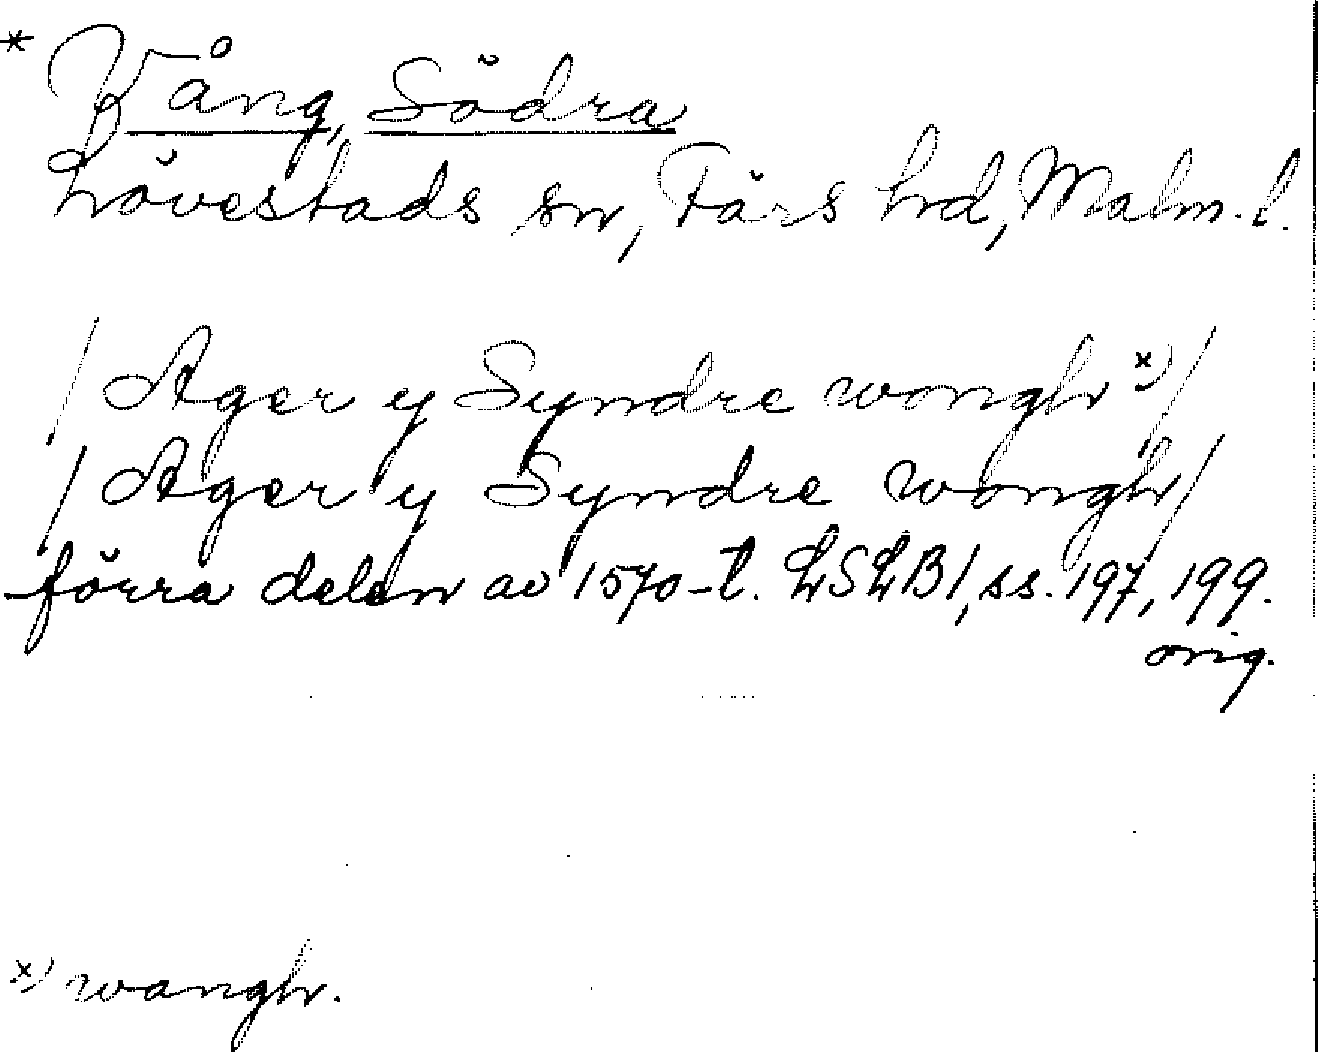 * Vång, Södra
Lövestads sn, Färs hd, Malm. l.
/ Ager y Syndre wongh x) /
/ Ager y Syndre wongh /
förra delen av 1570-t. LSLB1, ss. 197, 199.
orig.
x) wangh.